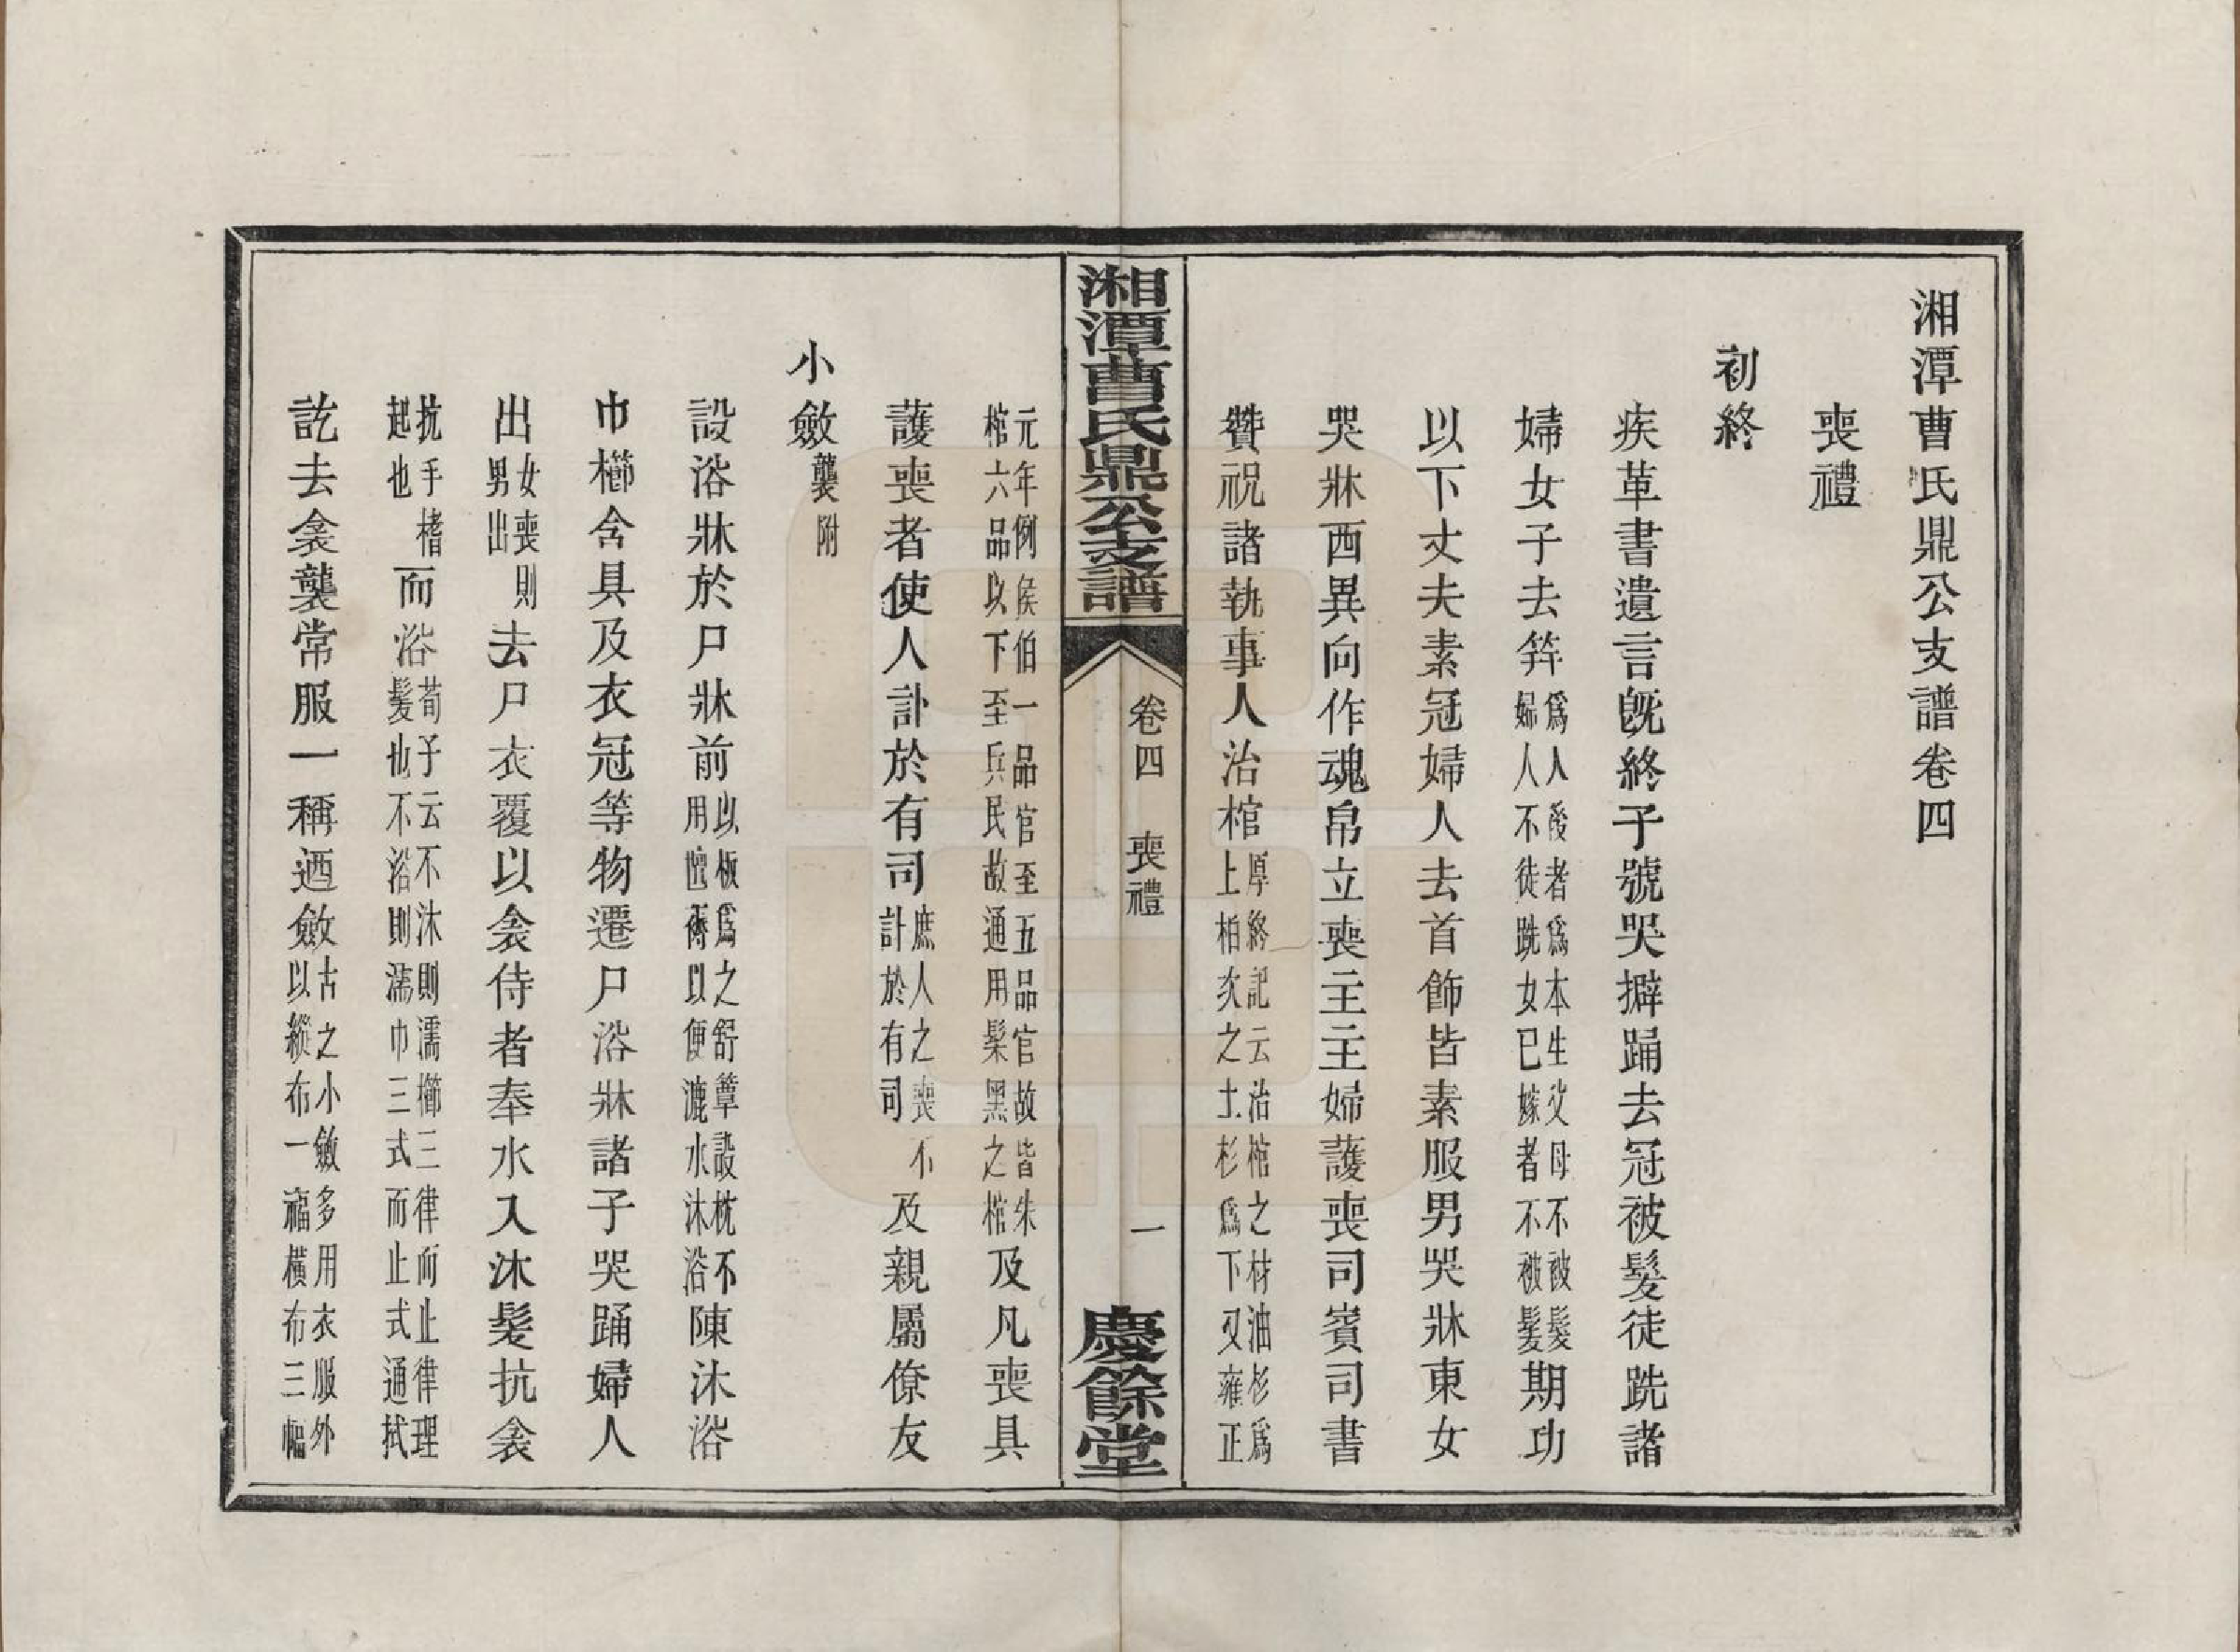 湘潭曹氏鼎公支譜卷四
喪禮
初終
疾革書遺言旣終子號哭擗踊去冠被髮徒跣諸
婦女子去笄爲人後者爲本生父母不被髮婦人不徒跣女已嫁者不被髮期功
以下丈夫素冠婦人去首飾皆素服男哭牀東女
哭牀西異向作魂帛立喪主主婦護喪司賓司書
贊祝諸執事人治棺厚終記云治棺之材油杉爲上柏次之土杉爲下又雍正
湘潭曹氏鼎公支譜
卷四 喪禮
一
慶餘堂
元年例侯伯一品官至五品官故皆朱棺六品以下至兵民故通用髹黑之棺及凡喪具
護喪者使人訃於有司庶人之喪不訃於有司及親屬僚友
小斂襲附
設浴牀於尸牀前以板爲之舒簟設枕不用氊褥以便漉水沐浴陳沐浴
巾櫛含具及衣冠等物遷尸浴牀諸子哭踊婦人
出女喪則男出去尸衣覆以衾侍者奉水入沐髮抗衾
抗手楮起也而浴荀子云不沐則濡櫛三律而止律理髮也不浴則濡巾三式而止式通拭
訖去衾襲常服一稱迺斂古之小斂多用衣服外以縱布一幅橫布三幅